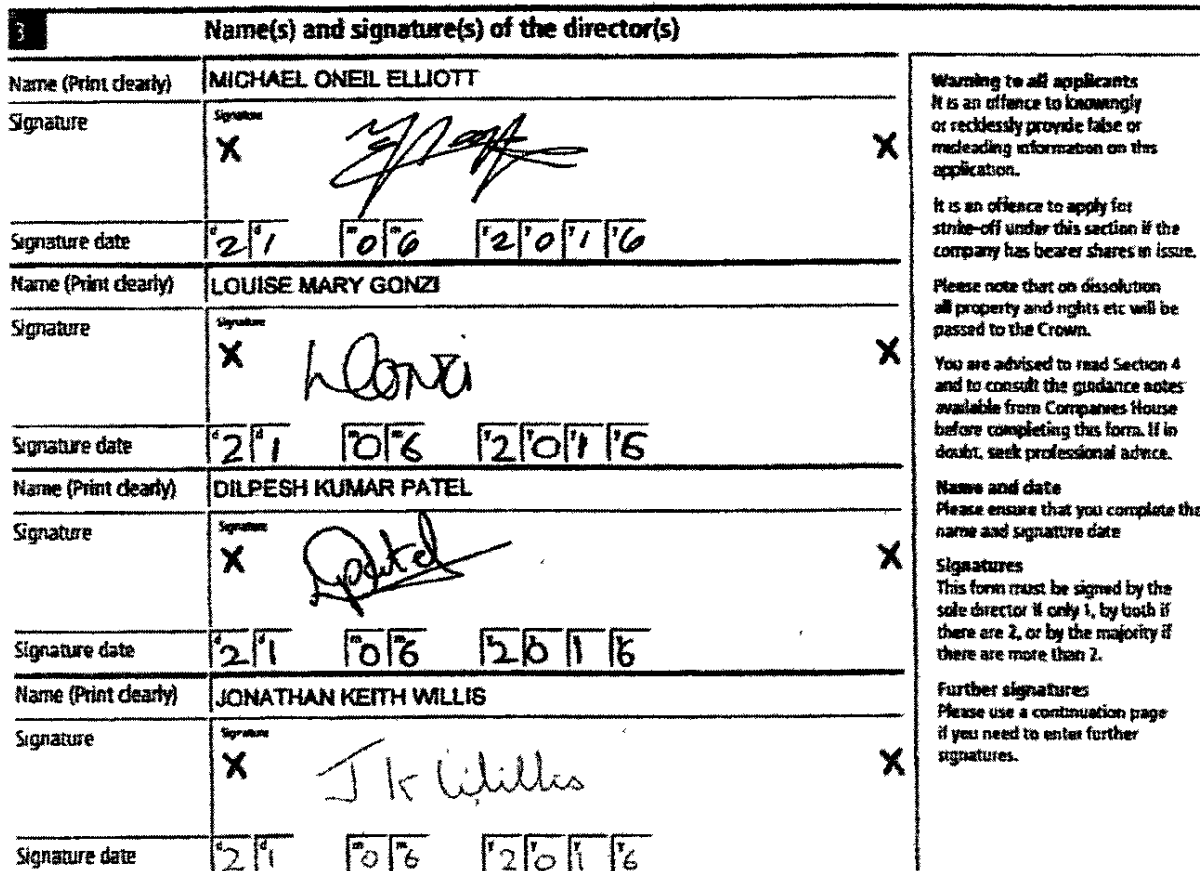 3 Name(s) and signature(s) of the director(s)
Name (Print clearly) MICHAEL ONEIL ELLIOTT
Signature
Signature
X X
Signature date d2 d1 m0 m6 y2 y0 y1 y6
Name (Print clearly) LOUISE MARY GONZI
Signature
Signature
X LGonzi X
Signature date d2 d1 m0 m6 y2 y0 y1 y6
Name (Print clearly) DILPESH KUMAR PATEL
Signature
Signature
X DPatel X
Signature date d2 d1 m0 m6 y2 y0 y1 y6
Name (Print clearly) JONATHAN KEITH WILLIS
Signature
Signature
X J K Willis X
Signature date d2 d1 m0 m6 y2 y0 y1 y6
Warning to all applicants
It is an offence to knowingly
or recklessly provide false or
misleading information on this
application.
It is an offence to apply for
strike-off under this section if the
company has bearer shares in issue.
Please note that on dissolution
all property and rights etc will be
passed to the Crown.
You are advised to read Section 4
and to consult the guidance notes
available from Companies House
before completing this form. If in
doubt, seek professional advice.
Name and date
Please ensure that you complete the
name and signature date
Signatures
This form must be signed by the
sole director if only 1, by both if
there are 2, or by the majority if
there are more than 2.
Further signatures
Please use a continuation page
if you need to enter further
signatures.